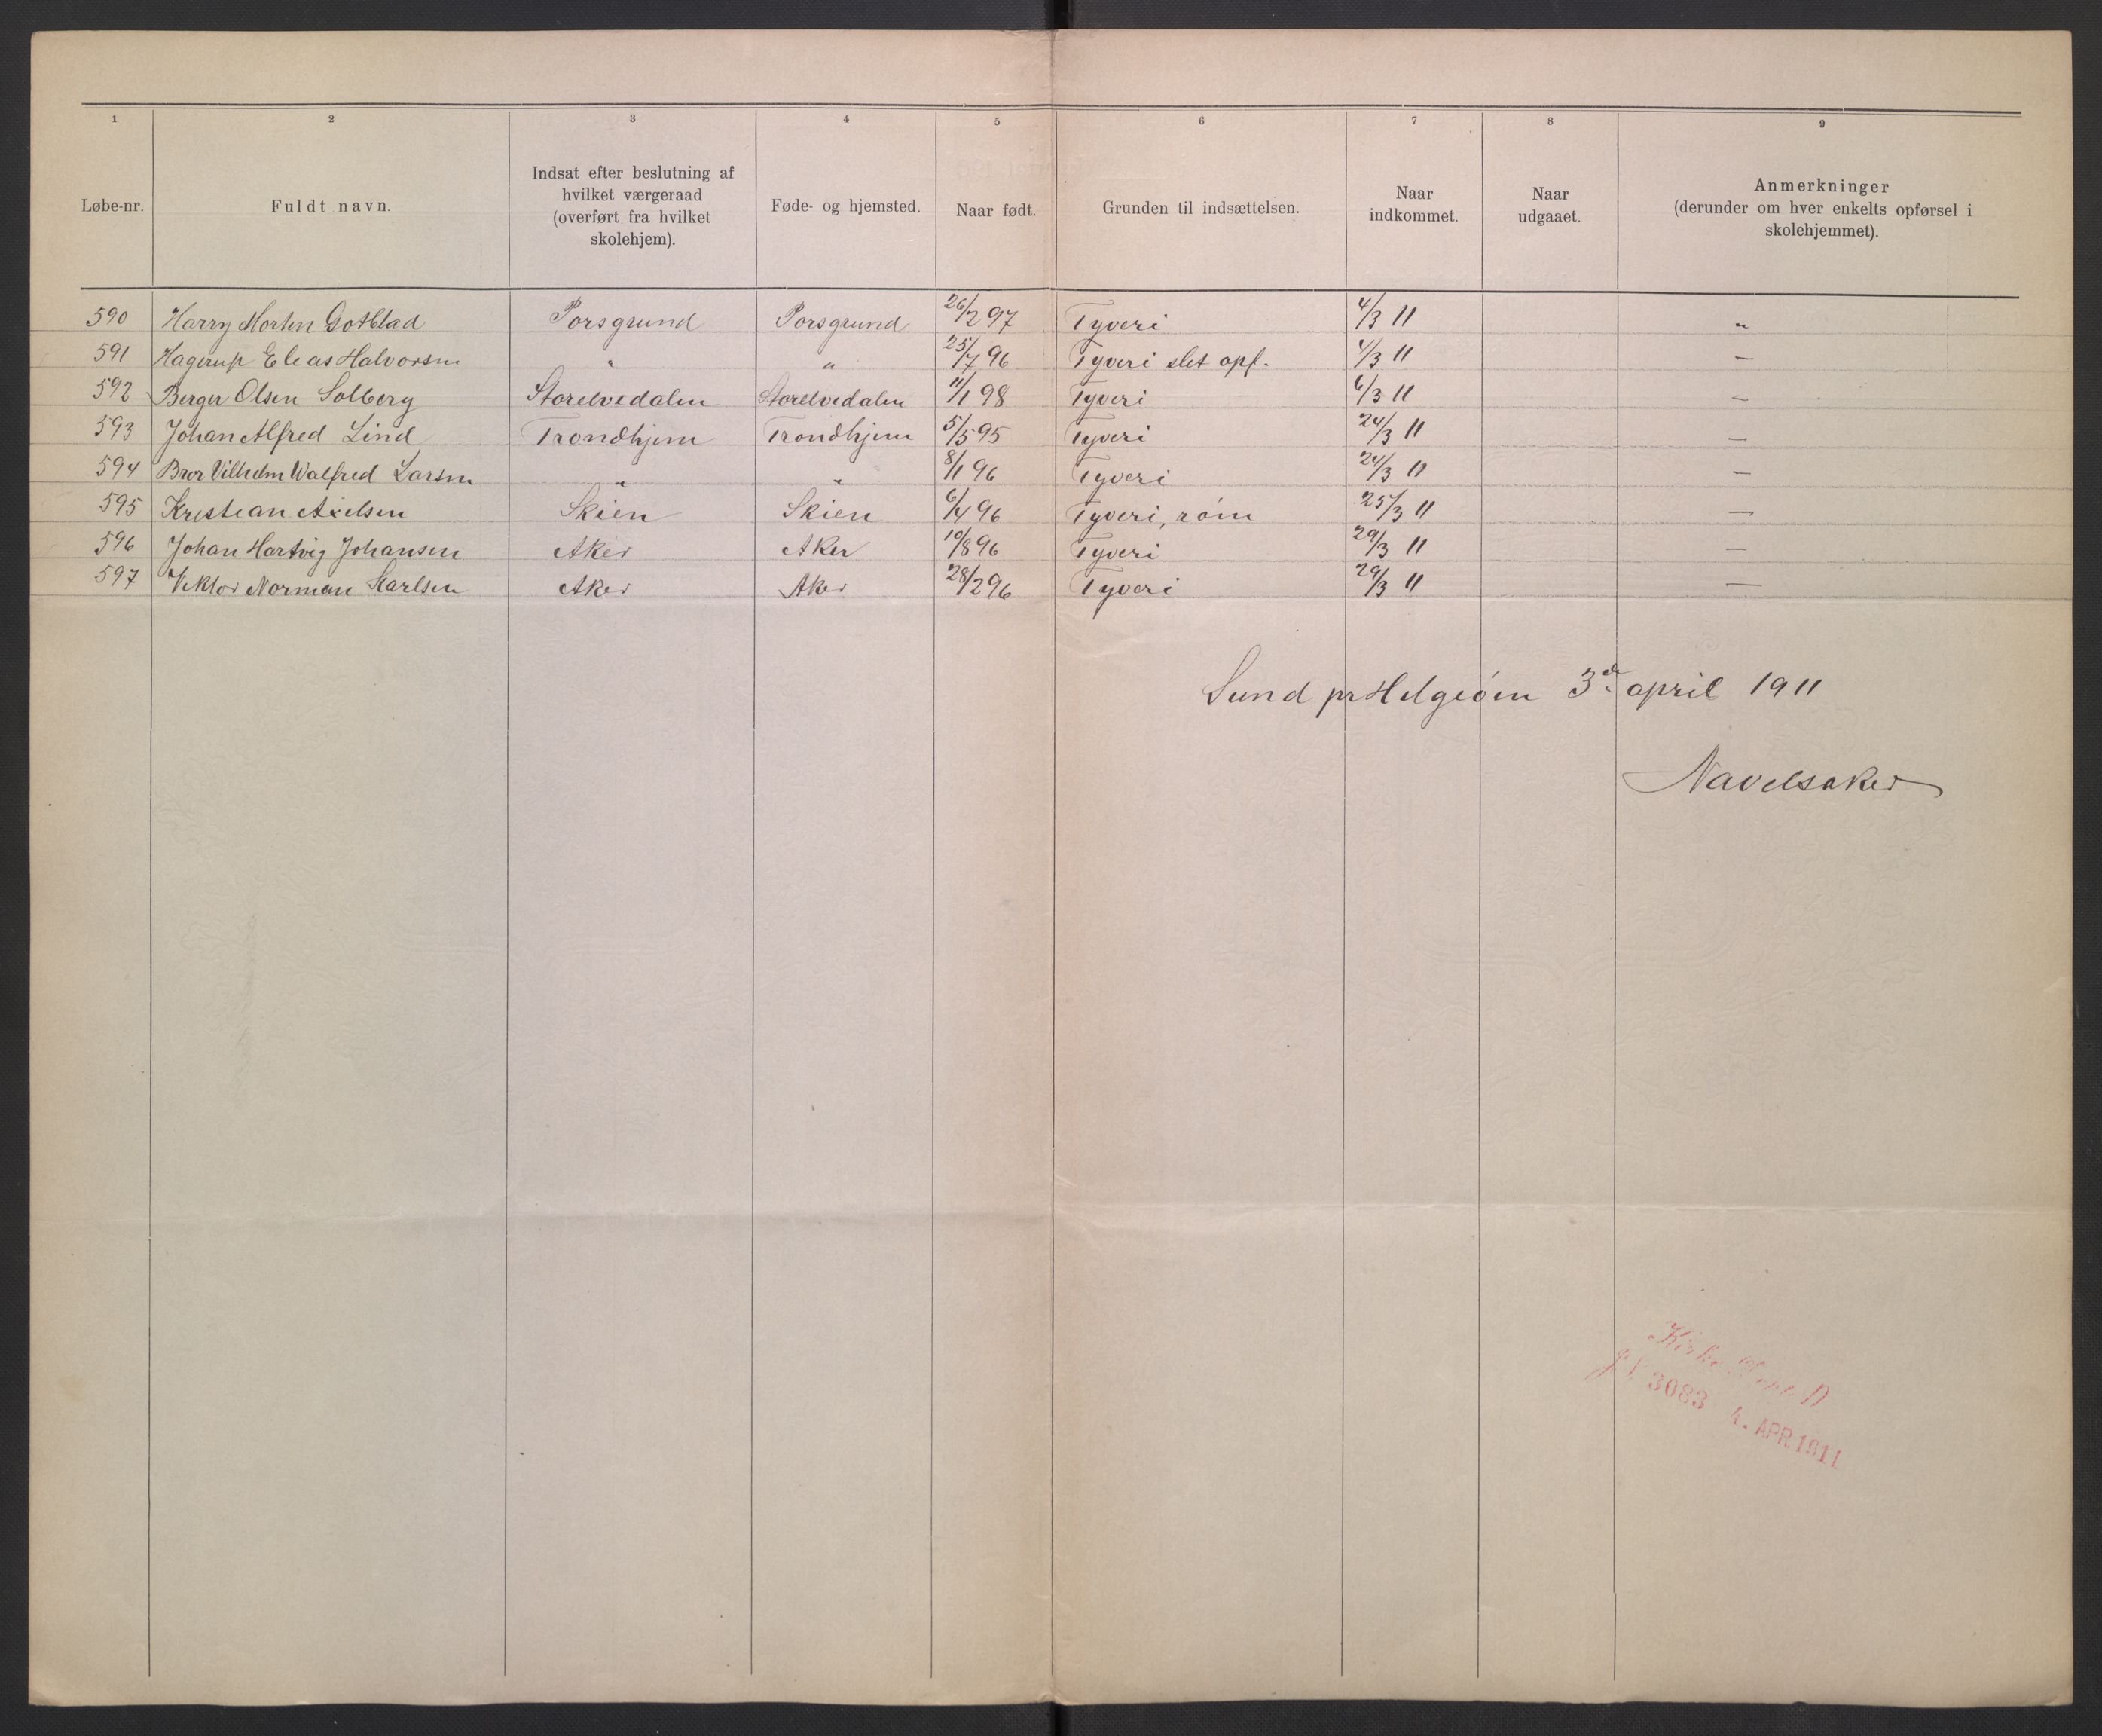 1 2 3 4 5 6 7 8 9
Løbe-nr. Fuldt navn. Indsat efter beslutning af hvilket værgeraad (overført fra hvilket skolehjem). Føde- og hjemsted. Naar født. Grunden til indsættelsen. Naar indkommet. Naar udgaaet. Anmerkninger (derunder om hver enkelts opførsel i skolehjemmet).
590 Harry Morten Gotblad Porsgrund Porsgrund 26/2 97 Tyveri 4/3 11 "
591 Hagerup Elias Halvorsen " " 25/7 96 Tyveri slet opf. 4/3 11 —
592 Berger Olsen Solberg Storelvedalen Storelvedalen 11/1 98 Tyveri 6/3 11 —
593 Johan Alfred Lind Trondhjem Trondhjem 5/5 95 Tyveri 24/3 11 —
594 Bror Vilhelm Walfred Larsen " " 8/1 96 Tyveri 24/3 11 —
595 Kristian Axelsen Skien Skien 6/4 96 Tyveri, røm 25/3 11 —
596 Johan Hartvig Johansen Aker Aker 10/8 96 Tyveri 29/3 11 —
597 Viktor Norman Karlsen Aker Aker 28/2 96 Tyveri 29/3 11 —
Sund pr Helgøen 3de april 1911
Navelsaker
Kirke Dept. D
3083 4. APR 1911